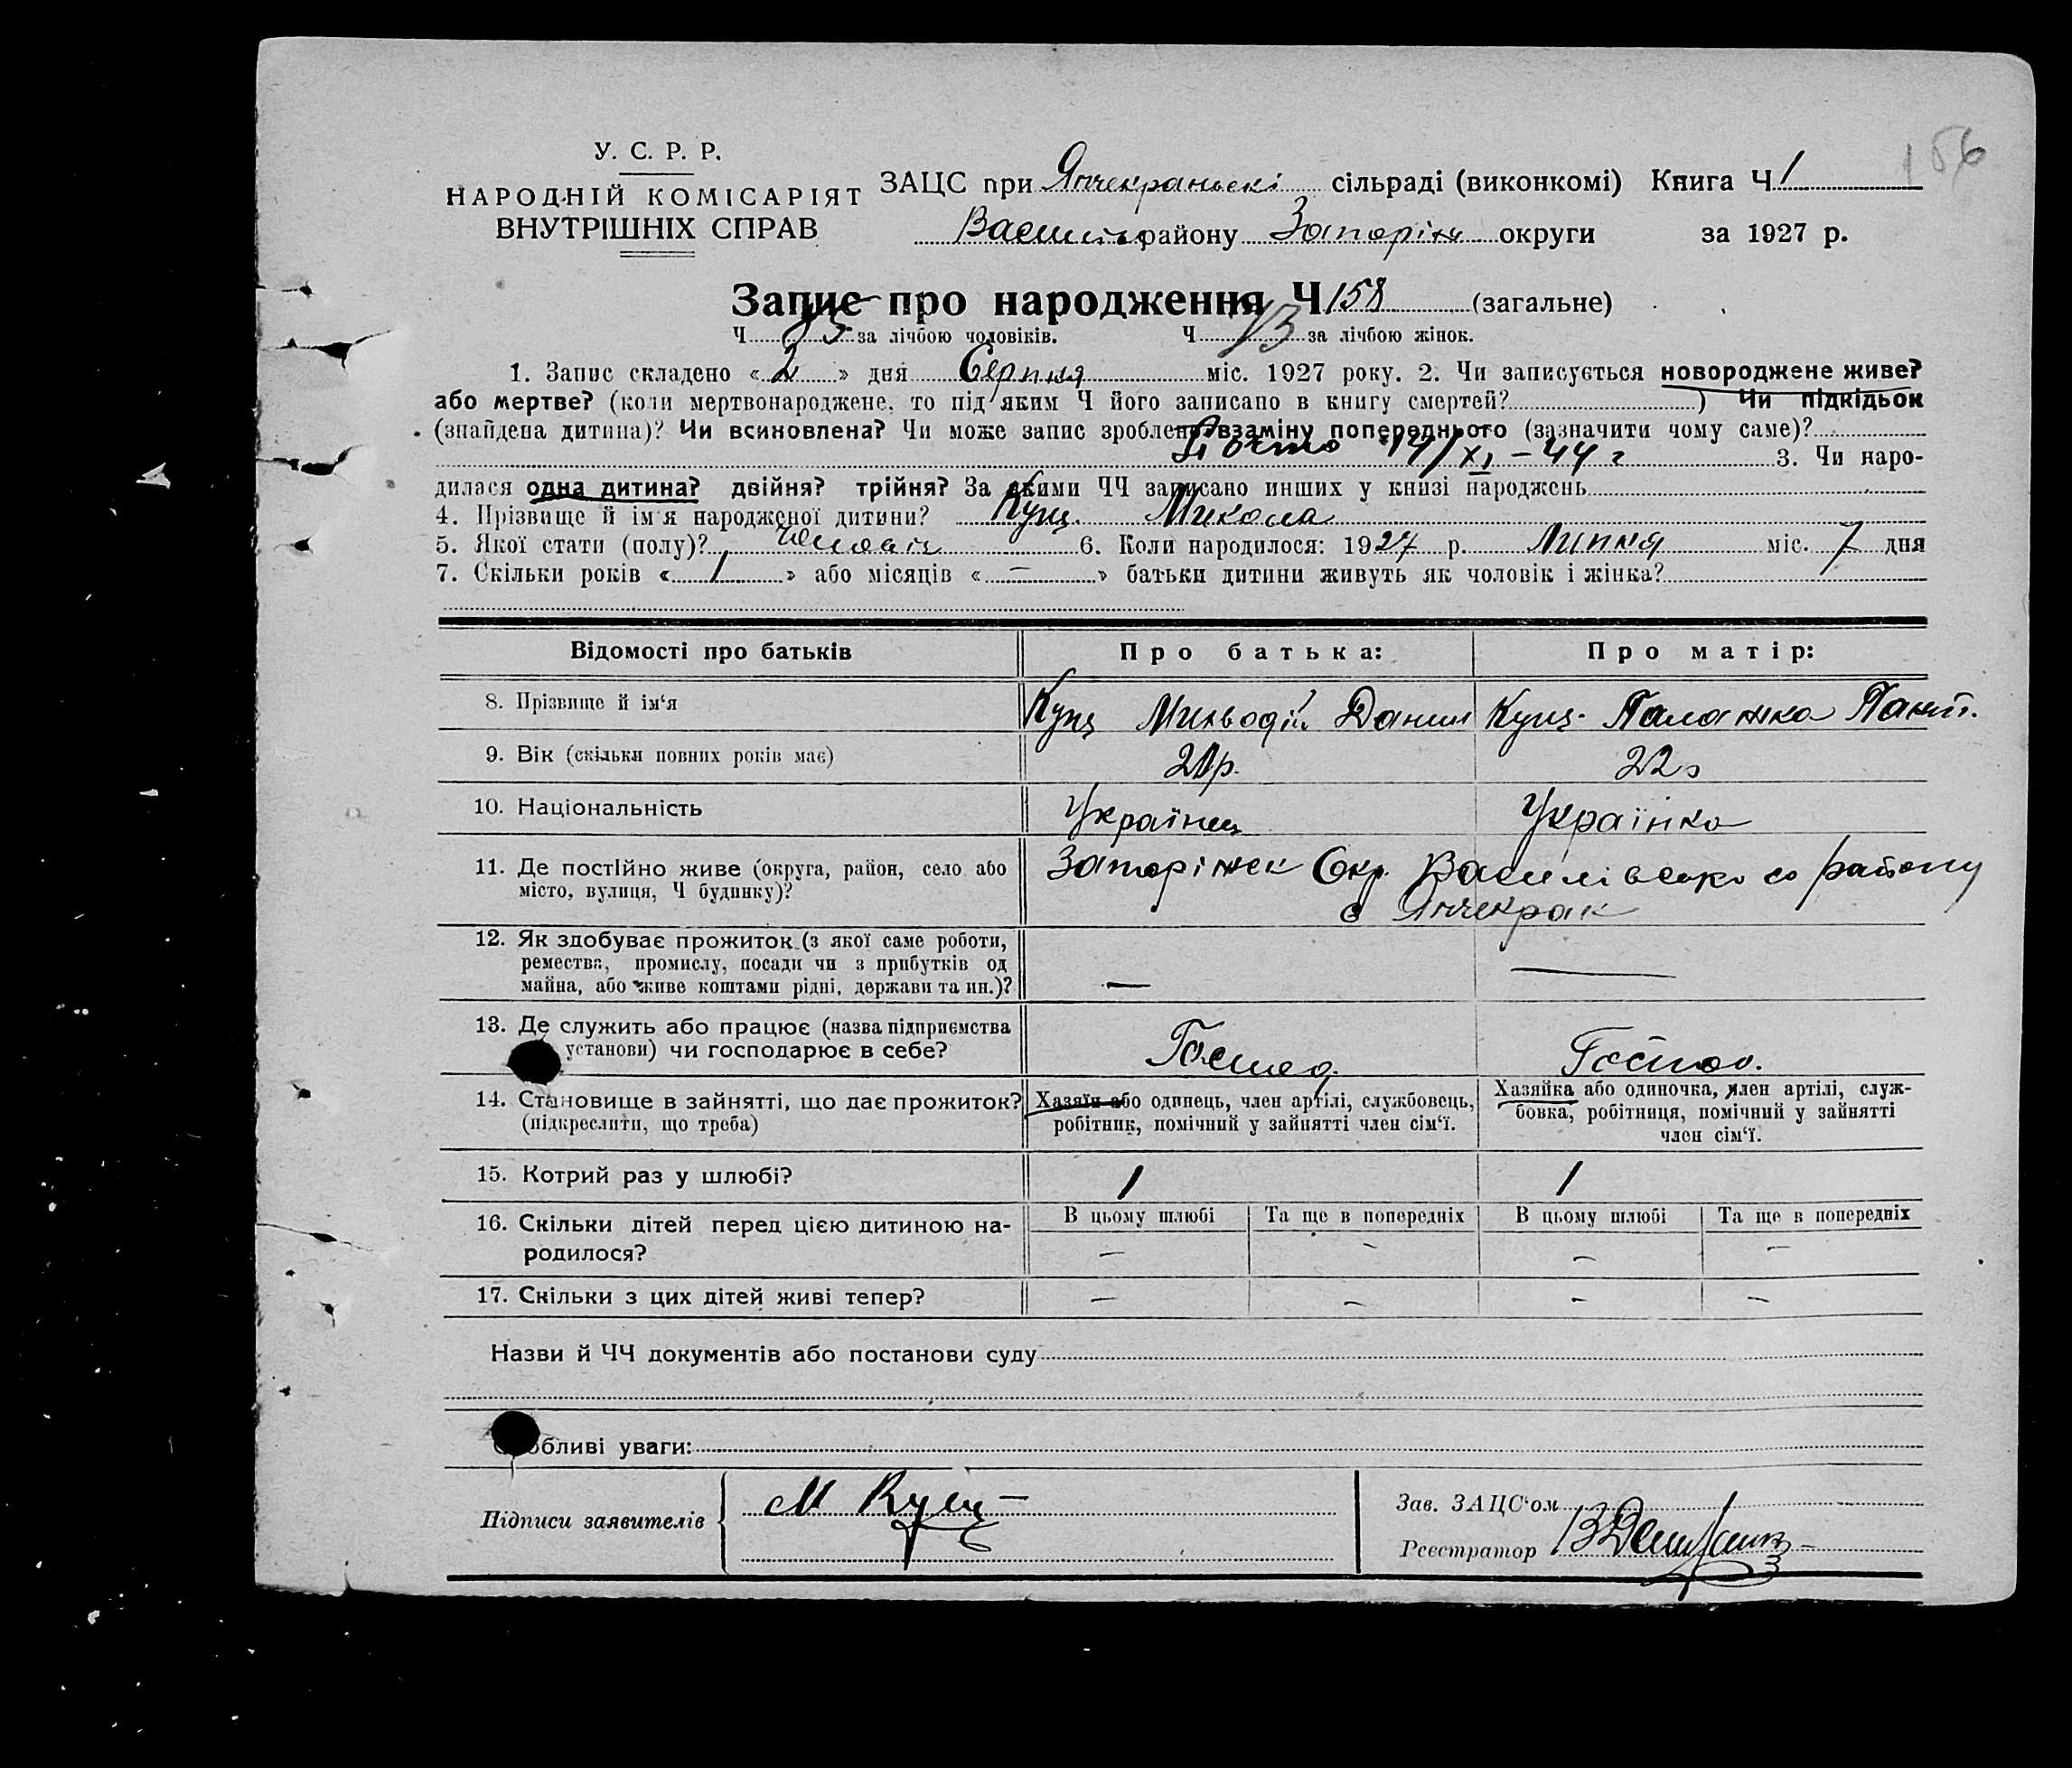 156
У. С. Р. Р.
НАРОДНІЙ КОМІСАРІЯТ
ВНУТРІШНІХ СПРАВ
ЗАЦС при Янчекраньскі сільраді (виконкомі) Книга Ч 1
Василів району Запоріж округи за 1927 р.
Запис про народження Ч 158 (загальне)
Ч 85 за лічбою чоловіків. Ч 73 за лічбою жінок.
1. Запис складено « 2 » дня Серпня міс. 1927 року. 2. Чи записується новороджене живе?
або мертве? (коли мертвонароджене, то під яким Ч його записано в книгу смертей? ) Чи підкідьок
(знайдена дитина)? Чи всиновлена? Чи може запис зроблено взаміну попереднього (зазначити чому саме)?
14/XI – 44 г 3. Чи наро-
дилася одна дитина? двійня? трійня? За якими ЧЧ записано инших у книзі народжень
4. Прізвище й ім'я народженої дитини? Куц Микола
5. Якої стати (полу)? Чоловіч 6. Коли народилося: 1927 р. Липня міс. 7 дня
7. Скільки років « 1 » або місяців « – » батьки дитини живуть як чоловік і жінка?
Відомості про батьків Про батька: Про матір:
8. Прізвище й ім'я Куц Михводій Данил Куц Палажка Пант.
9. Вік (скільки повних років має) 21р. 22
10. Національність Українец Українка
11. Де постійно живе (округа, район, село або Запоріжск Окр. Василівсько со району
місто, вулиця, Ч будинку)? с Янчекрак
12. Як здобуває прожиток (з якої саме роботи,
ремества, промислу, посади чи з прибутків од
майна, або живе коштами рідні, держави та ин.)? — —
13. Де служить або працює (назва підприємства
установи) чи господарює в себе? Господ. Господ.
14. Становище в зайнятті, що дає прожиток? Хазяїн або одинець, член артілі, службовець, Хазяйка або одиночка, член артілі, служ-
(підкреслити, що треба) робітник, помічний у зайнятті член сім'ї. бовка, робітниця, помічний у зайнятті
член сім'ї.
15. Котрий раз у шлюбі? 1 1
16. Скільки дітей перед цією дитиною на- В цьому шлюбі Та ще в попередніх В цьому шлюбі Та ще в попередніх
родилося? – – – –
17. Скільки з цих дітей живі тепер? – – – –
Назви й ЧЧ документів або постанови суду
Особливі уваги:
Підписи заявителів М Куц
Зав. ЗАЦС'ом
Реєстратор